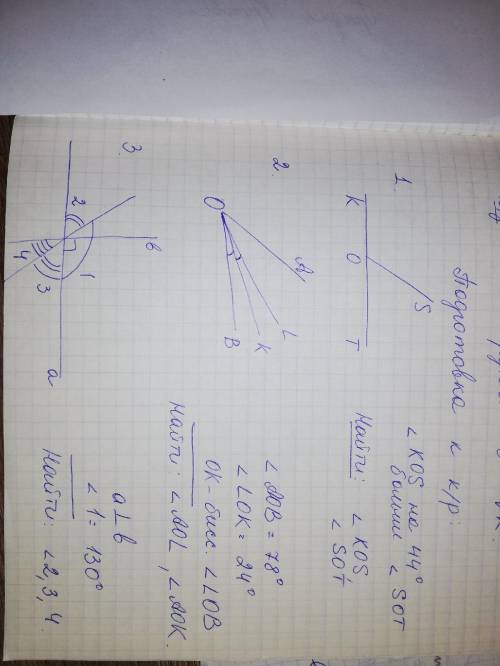 Подготовка к к/р:
1.
K O T
S
∠ KOS на 44°
больше ∠ SOT
Найти: ∠ KOS
∠ SOT
2.
O
A
L
K
B
∠ AOB = 78°
∠ LOK = 24°
OK - бисс. ∠ LOB
Найти: ∠ AOL, ∠ AOK.
3.
в
2
1
4
3
a
a ⊥ b
∠ 1 = 130°
Найти: ∠ 2, 3, 4.